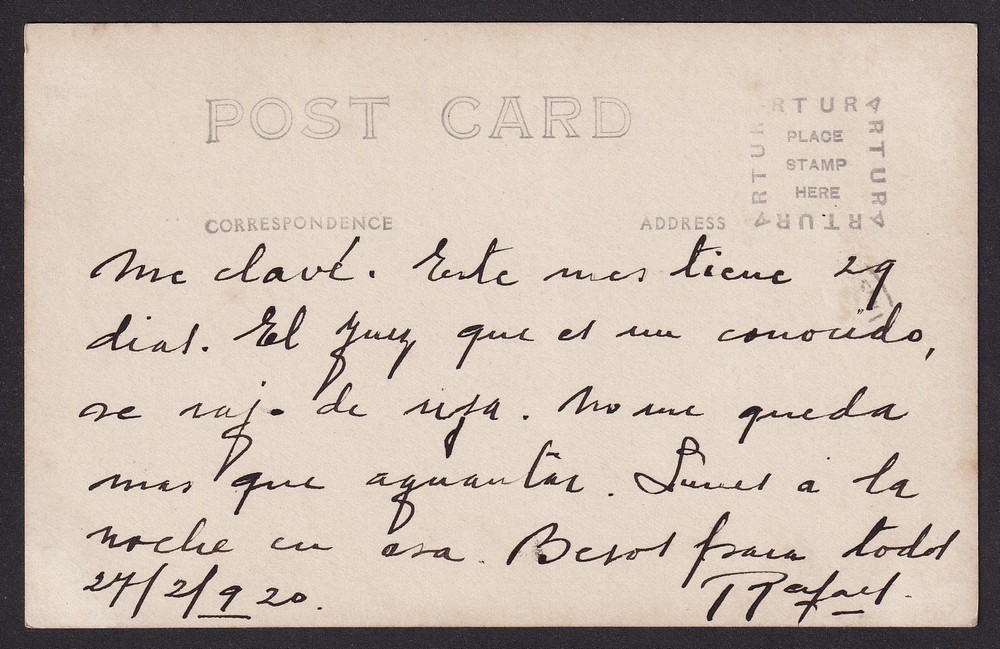 POST CARD
ARTURA ARTURA ARTURA ARTURA
PLACE
STAMP
HERE
CORRESPONDENCE
ADDRESS
Me clavé. Este mes tiene 29
dias. El Juez que es un conocido,
se rajo de risa. No me queda
mas que aguantar. Lunes a la
noche en esa. Besos para todos
27/2/920.
Rafael.